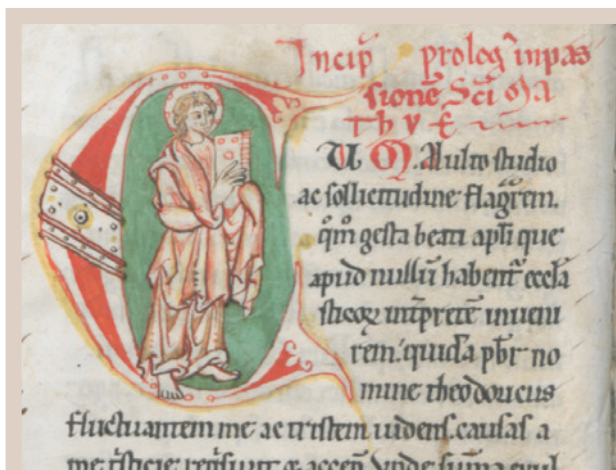 Incip̄ prolog᷒ inpas
sionē Sc̄i Ma
thyę
CUM. Multo studio
ac sollicitudine flagrem.
qm̄ gesta beati apl̄i que
apud nullū habent᷑ eccl̄a
sticoꝝ int̄pretē inueni
rem. quidā pbr̄ no
mine theodoricus
fluctuantem me ac tristem uidens. causas a
me tr̄sticie